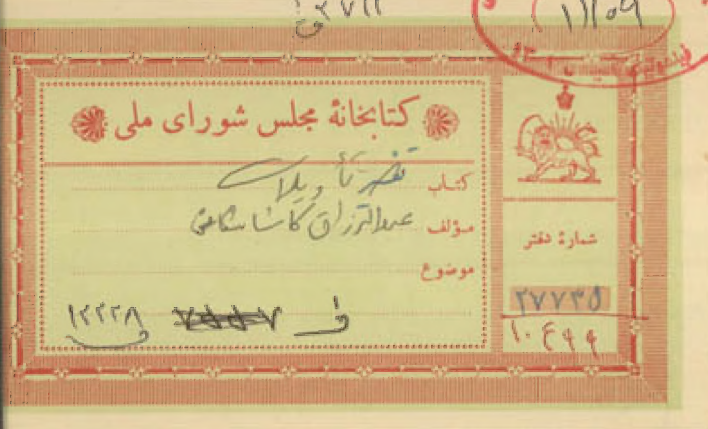 کتابخانهٔ مجلس شورای ملی
کتاب تفسیر تأویلات
مؤلف عبدالرزاق کاشانی
موضوع
شمارهٔ دفتر
۲۷۷۳۵
۱۰۴۹۹
ف
۱۲۲۲۸
ف